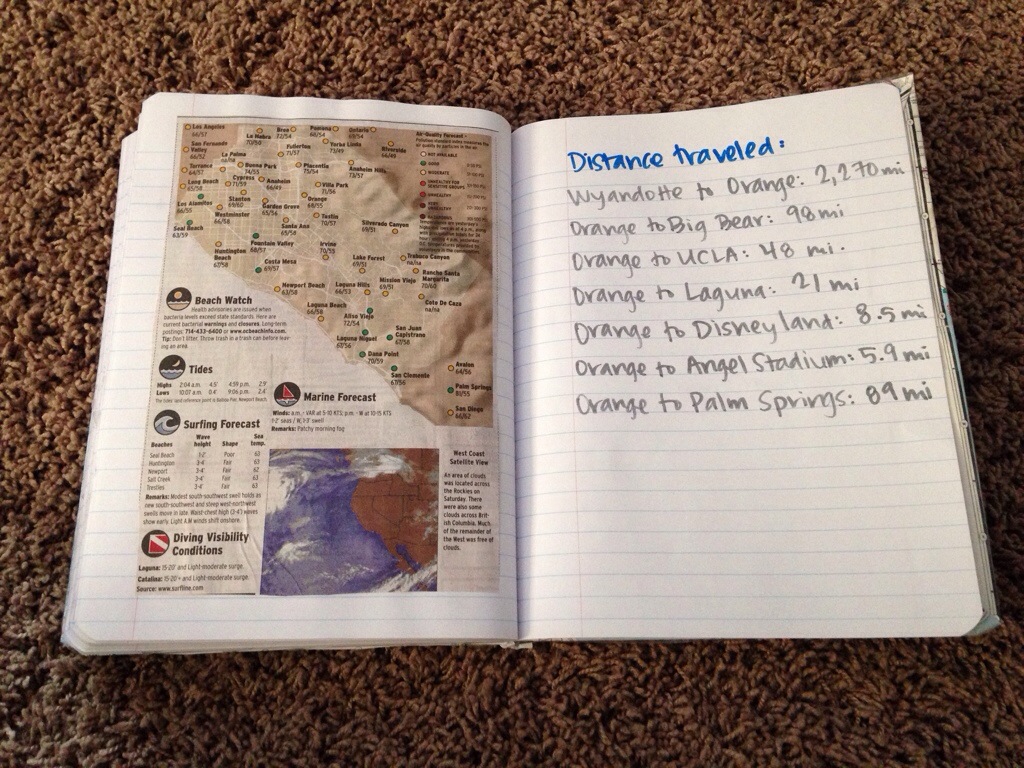 Los Angeles
66/57
San Fernando
Valley
66/52
La Habra
70/50
Brea
72/54
Pomona
68/54
Ontario
69/54
Fullerton
71/57
Yorba Linda
73/49
Riverside
66/49
La Palma
na/na
Torrance
64/57
Buena Park
74/55
Placentia
73/54
Anaheim Hills
73/57
Long Beach
65/58
Cypress
71/59
Anaheim
66/49
Villa Park
71/56
Los Alamitos
66/55
Stanton
69/60
Garden Grove
65/56
Orange
68/55
Westminster
66/58
Santa Ana
65/58
Tustin
70/57
Silverado Canyon
69/51
Seal Beach
63/59
Huntington
Beach
67/58
Fountain Valley
68/57
Irvine
70/55
Costa Mesa
69/57
Lake Forest
69/51
Trabuco Canyon
na/na
Newport Beach
63/58
Laguna Hills
66/53
Mission Viejo
69/51
Rancho Santa
Margarita
70/60
Laguna Beach
66/58
Coto De Caza
na/na
Aliso Viejo
72/54
Laguna Niguel
67/56
San Juan
Capistrano
67/58
Dana Point
70/59
San Clemente
67/56
Avalon
64/56
Palm Springs
81/55
San Diego
66/62
Air-Quality Forecast
NOT AVAILABLE
GOOD
MODERATE
UNHEALTHY FOR
SENSITIVE GROUPS
UNHEALTHY
VERY
UNHEALTHY
Beach Watch
Health advisories are issued when
bacteria levels exceed state standards. Here are
current bacterial warnings and closures. Long-term
postings: 714-433-6400 or www.ocbeachinfo.com.
Tip: Don't litter. Throw trash in a trash can before leav-
ing an area.
Tides
Highs 2:04 a.m. 4.5' 4:59 p.m. 2.9'
Lows 10:07 a.m. 0.4' 9:06 p.m. 2.4'
Marine Forecast
Winds: a.m. - VAR at 5-10 KTS; p.m. - W at 10-15 KTS
1-2' seas / W, 1-3' swell
Remarks: Patchy morning fog
Surfing Forecast
Beaches Wave height Shape Sea temp.
Seal Beach 1-2' Poor 63
Huntington 3-4' Fair 63
Newport 3-4' Fair 62
Salt Creek 3-4' Fair 63
Trestles 3-4' Fair 63
Remarks: Modest south-southwest swell holds as
new south-southwest and steep west-northwest
swells move in late. Waist-chest high (3-4') waves
show early. Light A.M winds shift onshore.
West Coast
Satellite View
An area of clouds
was located across
the Rockies on
Saturday. There
were also some
clouds across Brit-
ish Columbia. Much
of the remainder of
the West was free of
clouds.
Diving Visibility
Conditions
Laguna: 15-20' and Light-moderate surge.
Catalina: 15-20'+ and Light-moderate surge.
Source: www.surfline.com
Distance traveled:
Wyandotte to Orange: 2,270 mi
Orange to Big Bear: 98 mi
Orange to UCLA: 48 mi.
Orange to Laguna: 21 mi
Orange to Disneyland: 8.5 mi
Orange to Angel Stadium: 5.9 mi
Orange to Palm Springs: 89 mi